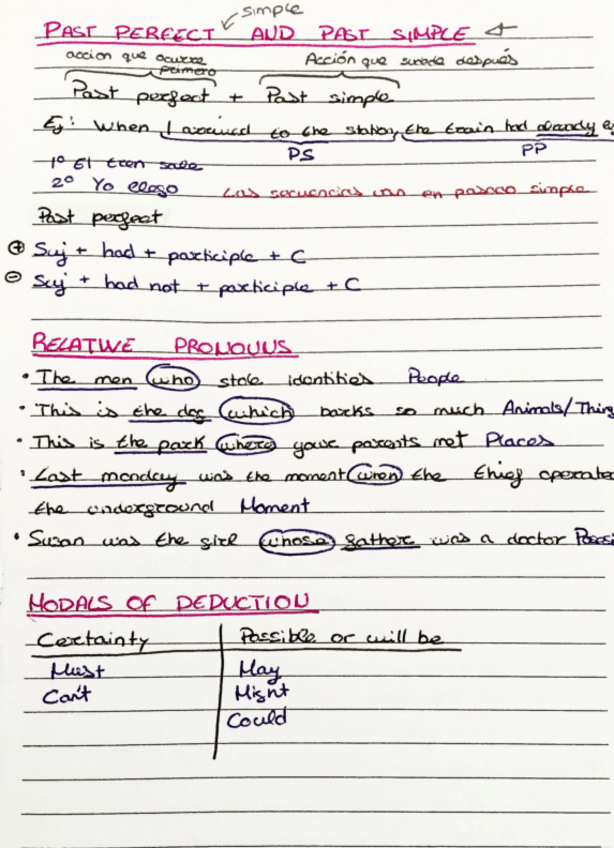 simple
PAST PERFECT AND PAST SIMPLE
accion que ocurre primero Acción que sucede después
Past perfect + Past simple
Ej: When I arrived to the station, the train had already
PS PP
1º El tren sale
2º Yo llego Las secuencias van en pasado simple
Past perfect
+ Suj + had + participle + C
- Suj + had not + participle + C
RELATIVE PRONOUNS
• The men who stole identities People
• This is the dog which barks so much Animals/Thing
• This is the park where your parents met Places
• Last monday was the moment when the thief operated
the underground Moment
• Susan was the girl whose father was a doctor
MODALS OF DEDUCTION
Certainty Possible or will be
Must May
Can't Might
Could